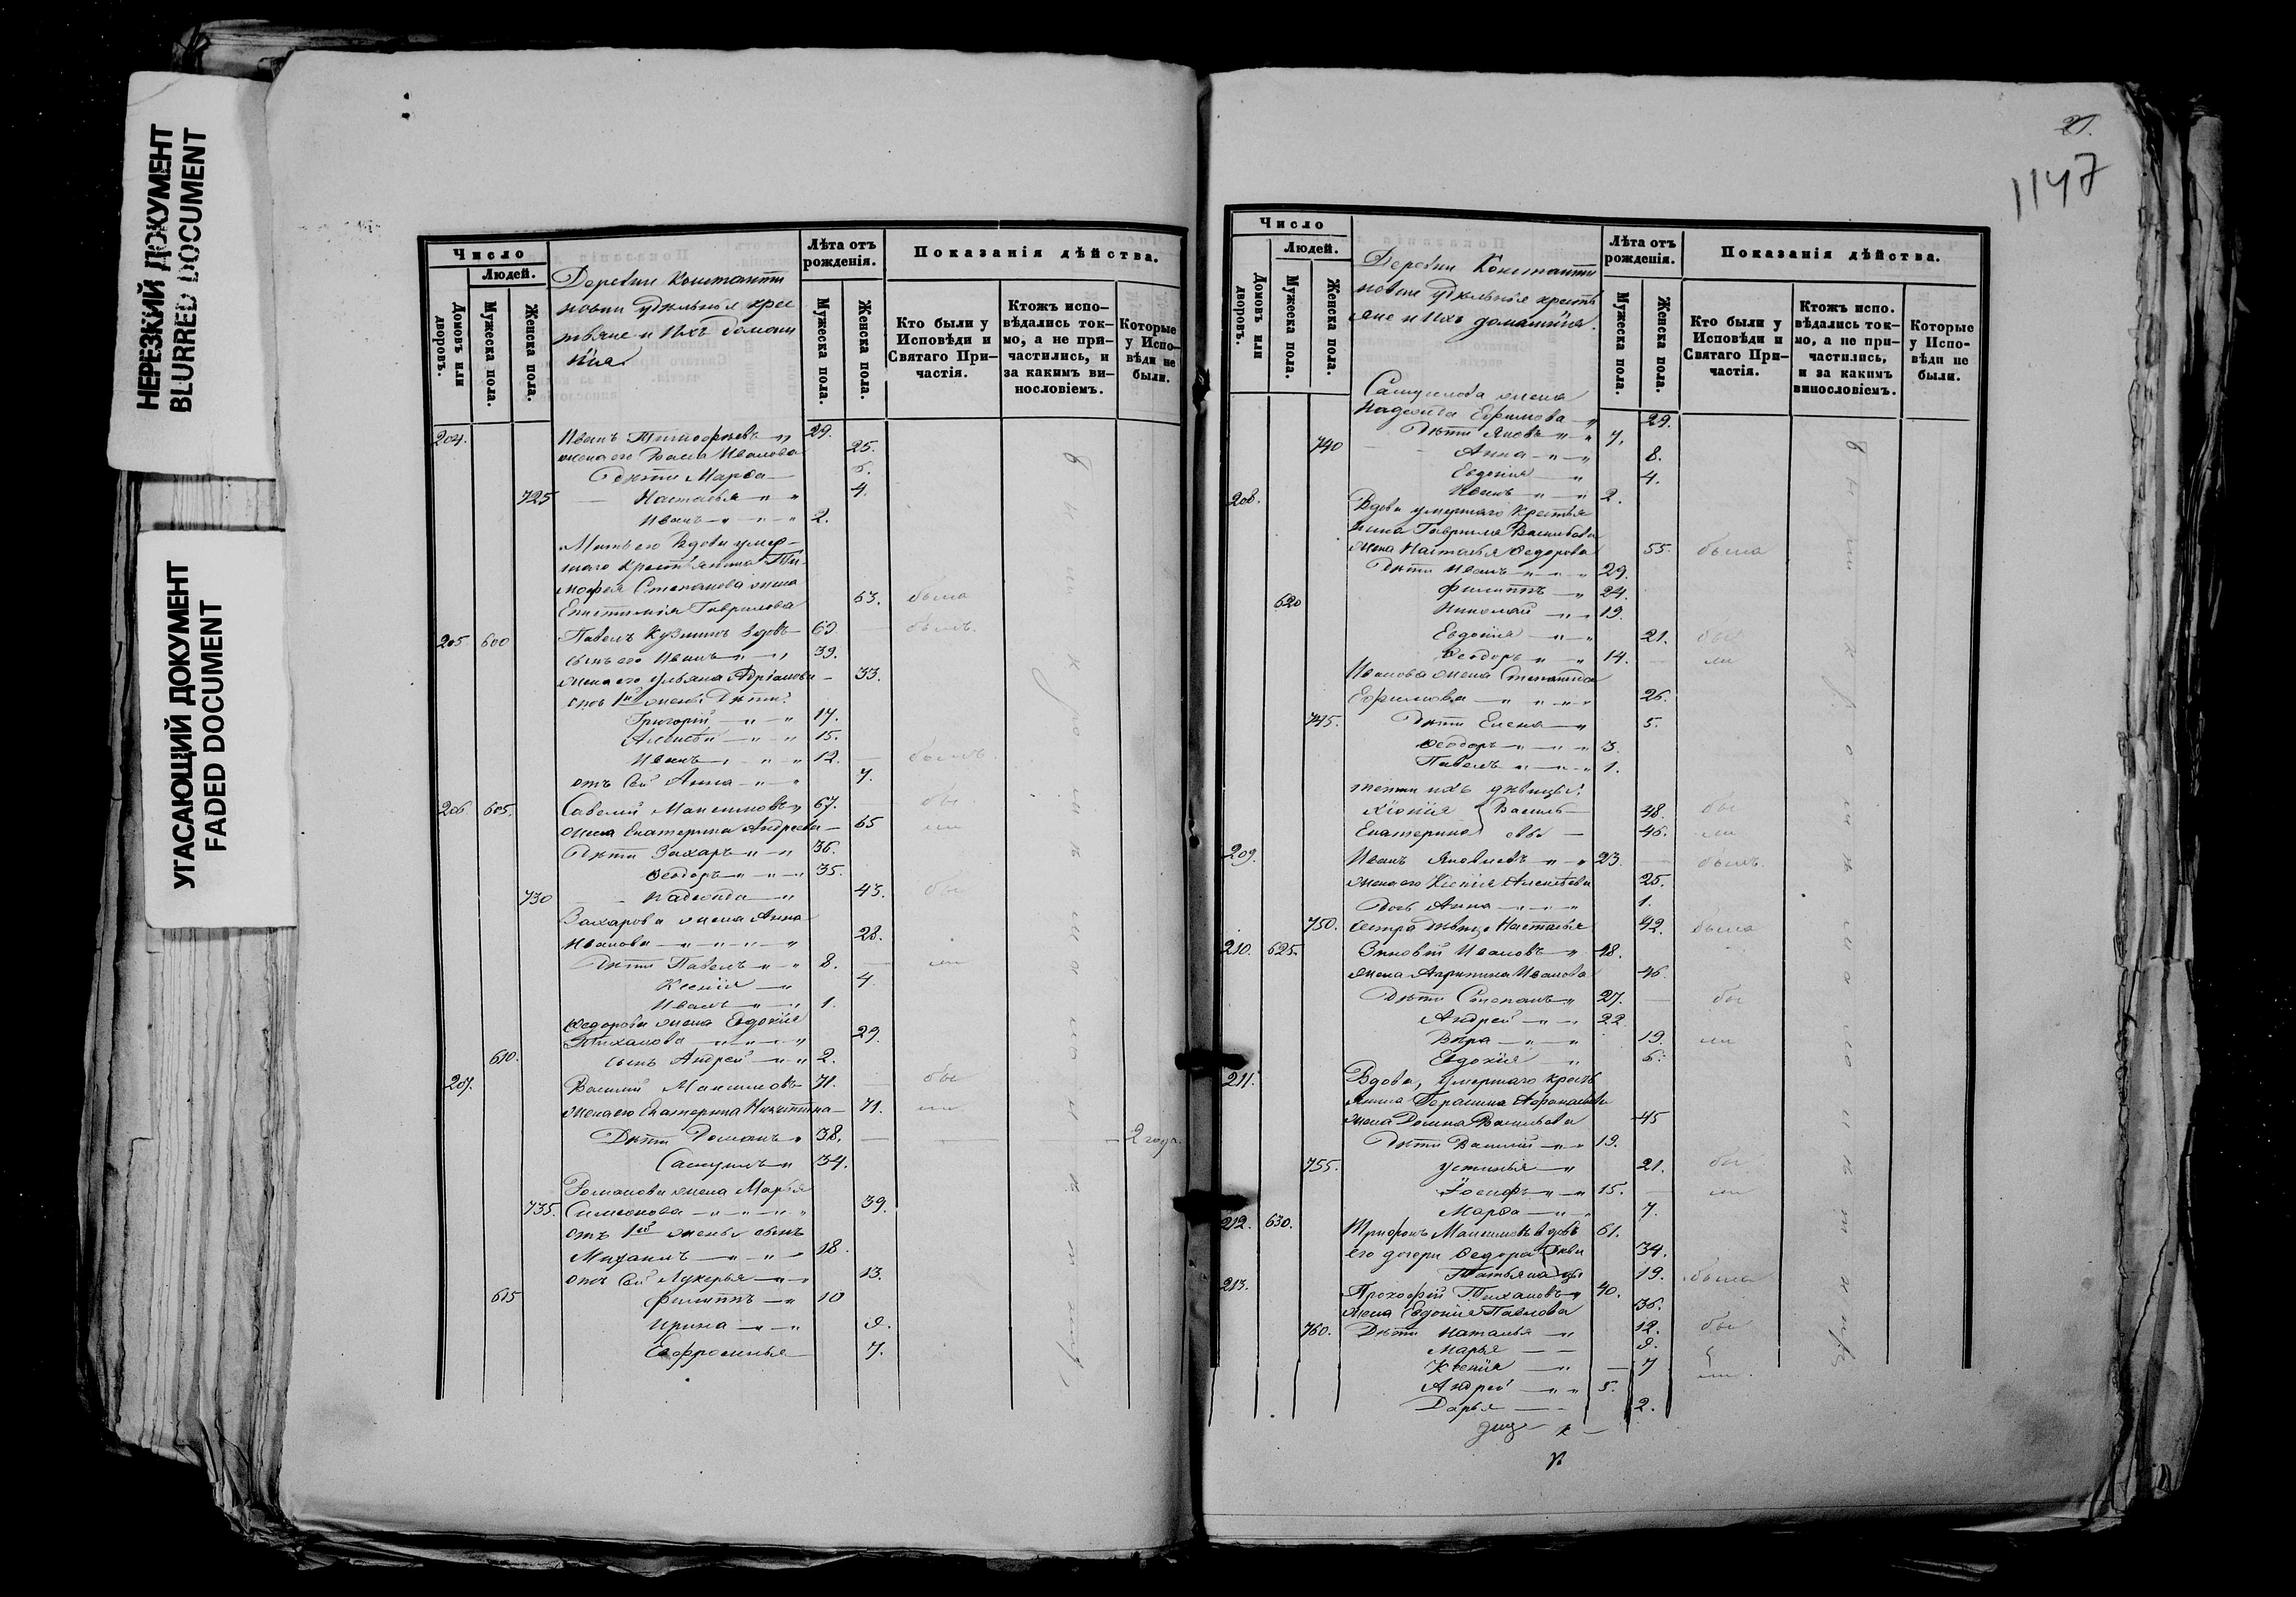 НЕРЕЗКИЙ ДОКУМЕНТ
BLURRED DOCUMENT
УГАСАЮЩИЙ ДОКУМЕНТ
FADED DOCUMENT
Число
Людей.
Домовъ или дворовъ.
Мужеска пола.
Женска пола.
Деревни Константи
новки удѣльныя крес
тьяне и ихъ домаш
нія.
Лѣта отъ рожденія.
Мужеска пола.
Женска пола.
Показанія дѣйства.
Кто были у Исповѣди и Святаго При-частія.
Ктожъ испо-вѣдались ток-мо, а не при-частились, и за какимъ ви-нословіемъ.
Которые у Испо-вѣди не были.
204. Иванъ Тимофѣевъ 29.
жена его Иванова 25.
Дѣти Марѳа
725 Наталья 4.
Иванъ 2.
Мать его Вдова умер-
шаго крестьянина Ти-
мофея Степанова жена
Епистимія Гаврилова 63. была
205. 600 Павелъ Кузминъ вдовъ 69 былъ.
сынъ его Иванъ 39.
жена его Ульяна Адріанова 33.
отъ 1й жены Дѣти:
Григорій 17.
Алексѣй 15.
Иванъ 12. былъ.
отъ сей Анна 7.
206 605. Савелій Максимовъ 67. бы
жена Екатерина Андреева 65 ли
Дѣти Захаръ 36.
Ѳеодоръ 35.
730 Надежда 43. бы
Захарова жена Анна
Иванова 28.
Дѣти Павелъ 8. ли
Ксенія 4
Иванъ 1.
Ѳедорова жена Евдокія
Тихонова 29.
610. сынъ Андрей 2.
207. Василій Максимовъ 71. бы
жена его Екатерина Никитина 71. ли
Дѣти Романъ 38. 2 года
Самуилъ 34.
Романова жена Марья
735. Симеонова 39.
отъ 1й жены сынъ
Михаилъ 18.
отъ сей Лукерья 13.
615 Филиппъ 10
Ирина 9.
Евфросинья 7.
1147
Число
Людей.
Домовъ или дворовъ.
Мужеска пола.
Женска пола.
Деревни Константи
новки удѣльныя кресть
яне и ихъ домашнія.
Лѣта отъ рожденія.
Мужеска пола.
Женска пола.
Показанія дѣйства.
Кто были у Исповѣди и Святаго При-частія.
Ктожъ испо-вѣдались ток-мо, а не при-частились, и за какимъ винословіемъ.
Которые у Испо-вѣди не были.
Самуилова жена
Надежда Ефимова 29.
740 Дѣти Яковъ 7.
Анна 8.
Евдокія 4.
Иванъ 2.
208. Вдова умершаго крестья
нина Гаврила Васильева
жена Наталья Ѳедорова 55. была
Дѣти Иванъ 29.
Филиппъ 24.
620 Николай 19.
Евдокія 21. бы
Ѳеодоръ 14. ли
Иванова жена Степанида
Ефимова 26.
745. Дѣти Елена 5.
Ѳеодоръ 3.
Павелъ 1.
тетки ихъ дѣвицы:
Хіонія Василь 48. бы
Екатерина евы 46. ли
209. Иванъ Яковлевъ 23. былъ.
жена его Ксенія Алексѣева 25.
Дочь Анна 1.
750. сестра Дѣвица Наталья 42. была
210. 625. Зиновій Ивановъ 48.
жена Агрипина Иванова 46.
Дѣти Степанъ 27. бы
Андрей 22.
Вѣра 19. ли
Евдокія 6.
211. Вдова, умершаго кресть
янина Герасима Афанасьева
жена Домна Васильева 45
Дѣти Василій 19.
755. Устинья 21. бы
Іосифъ 15. ли
Марѳа 7.
212. 630. Трифонъ Максимовъ вдовъ 61.
его дочери Ѳедора дѣви 34.
Татьяна цы 19. были
213. Прохофій Тихановъ 40.
жена Евдокія Павлова 36.
760. Дѣти Наталья 12. бы
Марья 9.
Ксенія 7 ли.
Андрей 5.
Дарья 2.